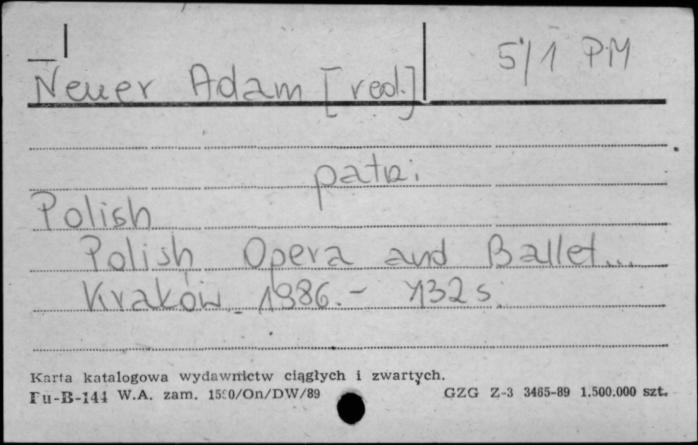 5/1 PM
Neuer Adam [red.]
patrz:
Polish
Polish Opera and Ballet...
Kraków 1986.- 132 s.
Karta katalogowa wydawnictw ciągłych i zwartych.
Pu-B-144 W.A. zam. 1590/On/DW/89 GZG Z-3 3465-89 1.500.000 szt.